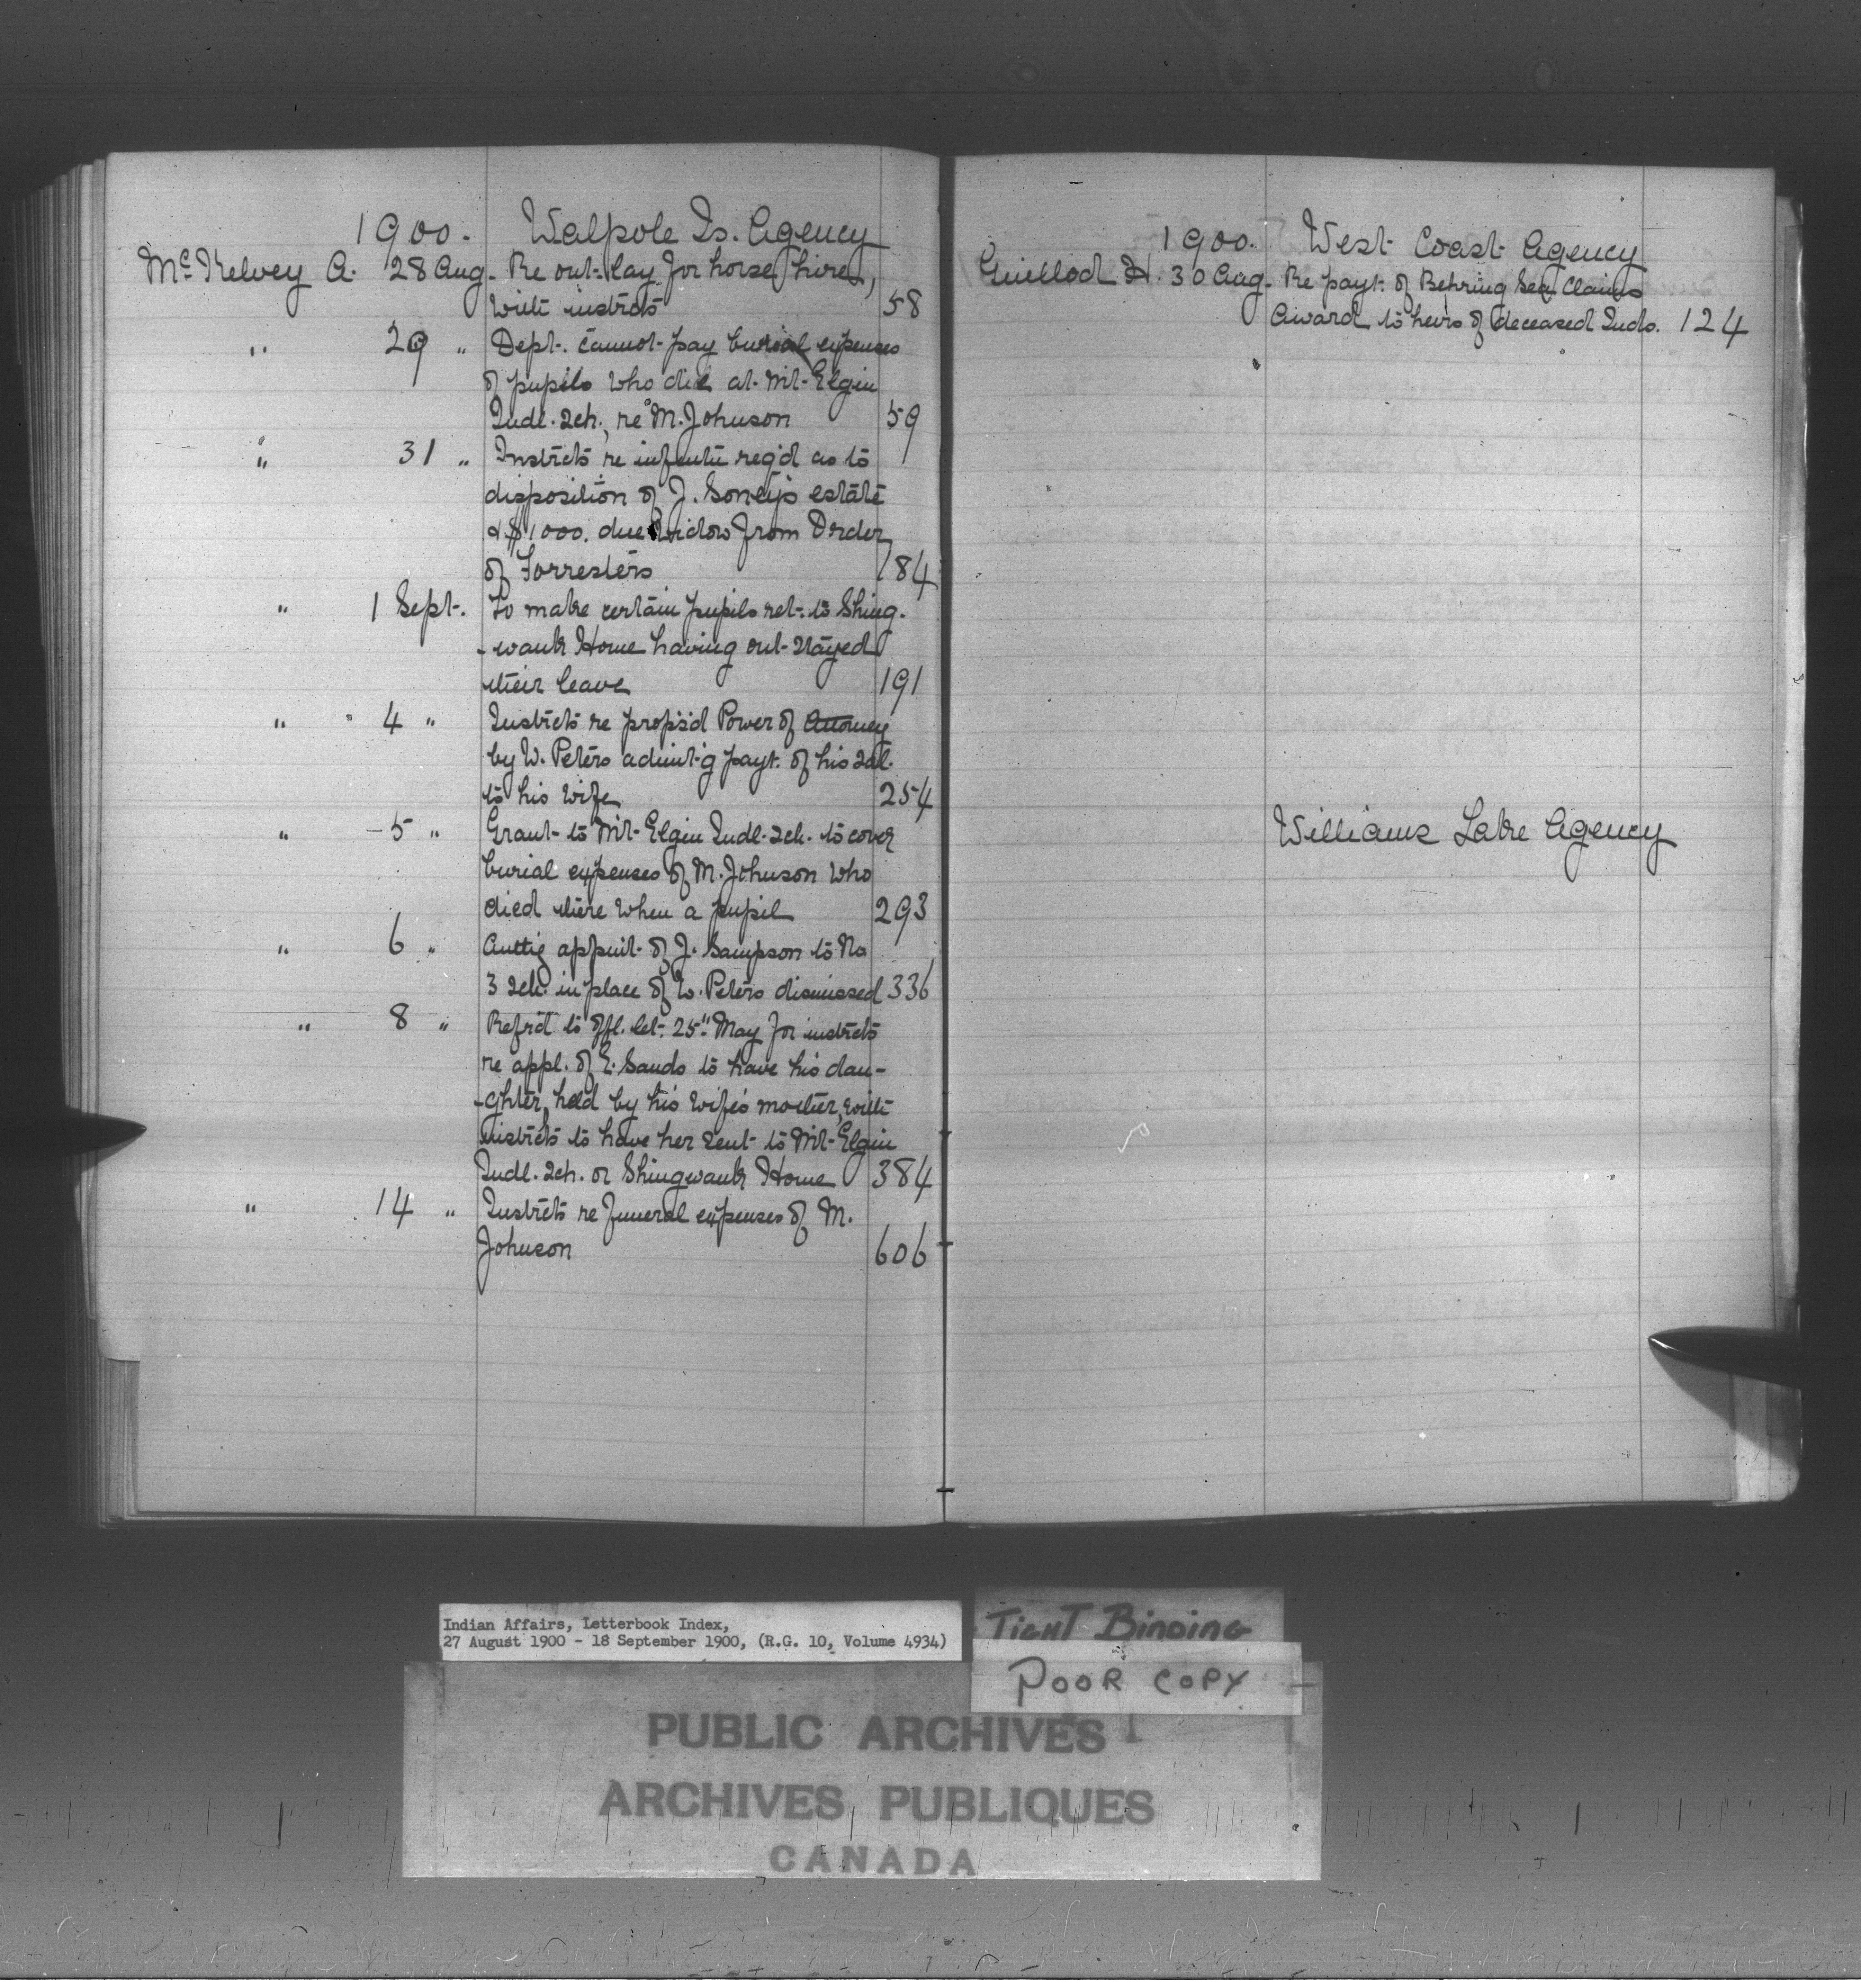 1900. Walpole Is. Agency
McKelvey A. 28 Aug. Re out-lay for horse hire,
with instrcts 58
" 29 " Dept. cannot pay burial expenses
of pupils who die at Mt. Elgin
Indl. Sch., re M. Johnson 59
" 31 " Instrcts re infmtn req'd as to
disposition of J. Soney's estate
& $1000. due widow from Order
of Forresters 184
" 1 Sept. To make certain pupils ret. to Shing-
-wauk Home having out-stayed
their leave 191
" " 4 " Instrcts re props'd Power of Attorney
by W. Peters admit'g payt. of his sal.
to his wife 254
" 5 " Grant to Mt. Elgin Indl. Sch. to cover
burial expenses of M. Johnson who
died there when a pupil 293
" 6 " appmt. of J. Sampson to No
3 Sch. in place of W. Peters dismissed 336
" 8 " Refr'd to offl. let. 25" May for instrcts
re appl. of E. Sands to have his dau-
-ghter, held by his wife's mother, with
instrcts to have her sent to Mt. Elgin
Indl. Sch. or Shingwauk Home 384
" 14 " Instrcts re funeral expenses of M.
Johnson 606
1900. West Coast Agency
Guillod H. 30 Aug. Re payt. of Behring Sea Claims
Award to heirs of deceased Inds. 124
Williams Lake Agency
Indian Affairs, Letterbook Index,
27 August 1900 - 18 September 1900, (R.G. 10, Volume 4934)
TIGHT BINDING
POOR COPY
PUBLIC ARCHIVES
ARCHIVES PUBLIQUES
CANADA